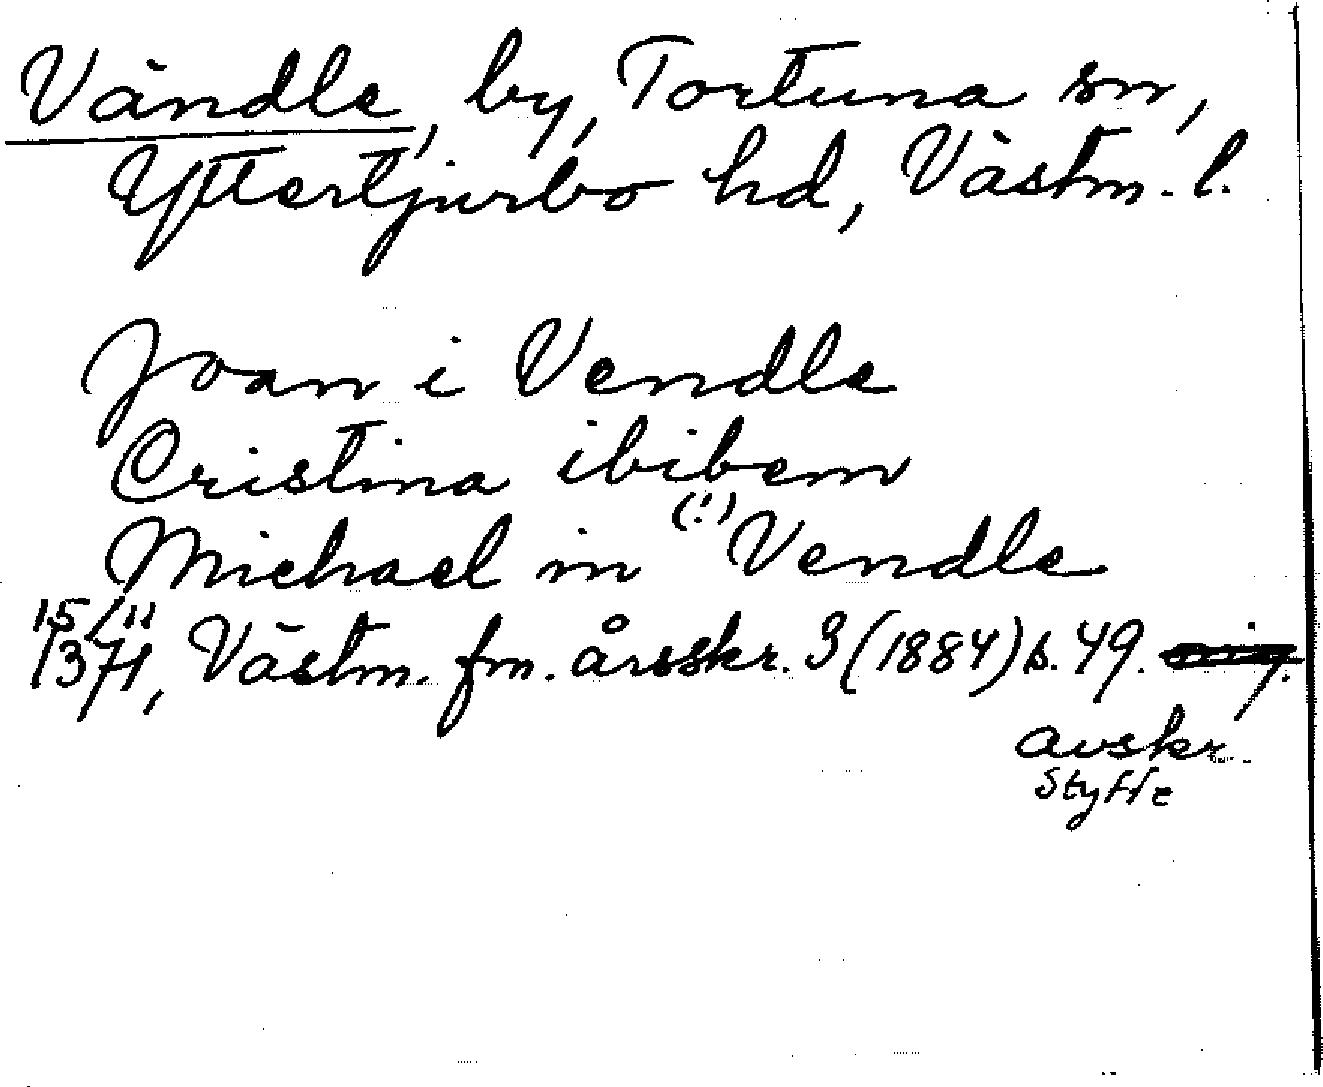 Vändle, by, Tortuna sn,
Yttertjurbo hd, Västm. l.
Joan i Vendle
Cristina ibibem
(!)
Michael in Vendle
15/11
1371, Västm. fm. årsskr. 3 (1884) s. 49.
avskr.
Styffe